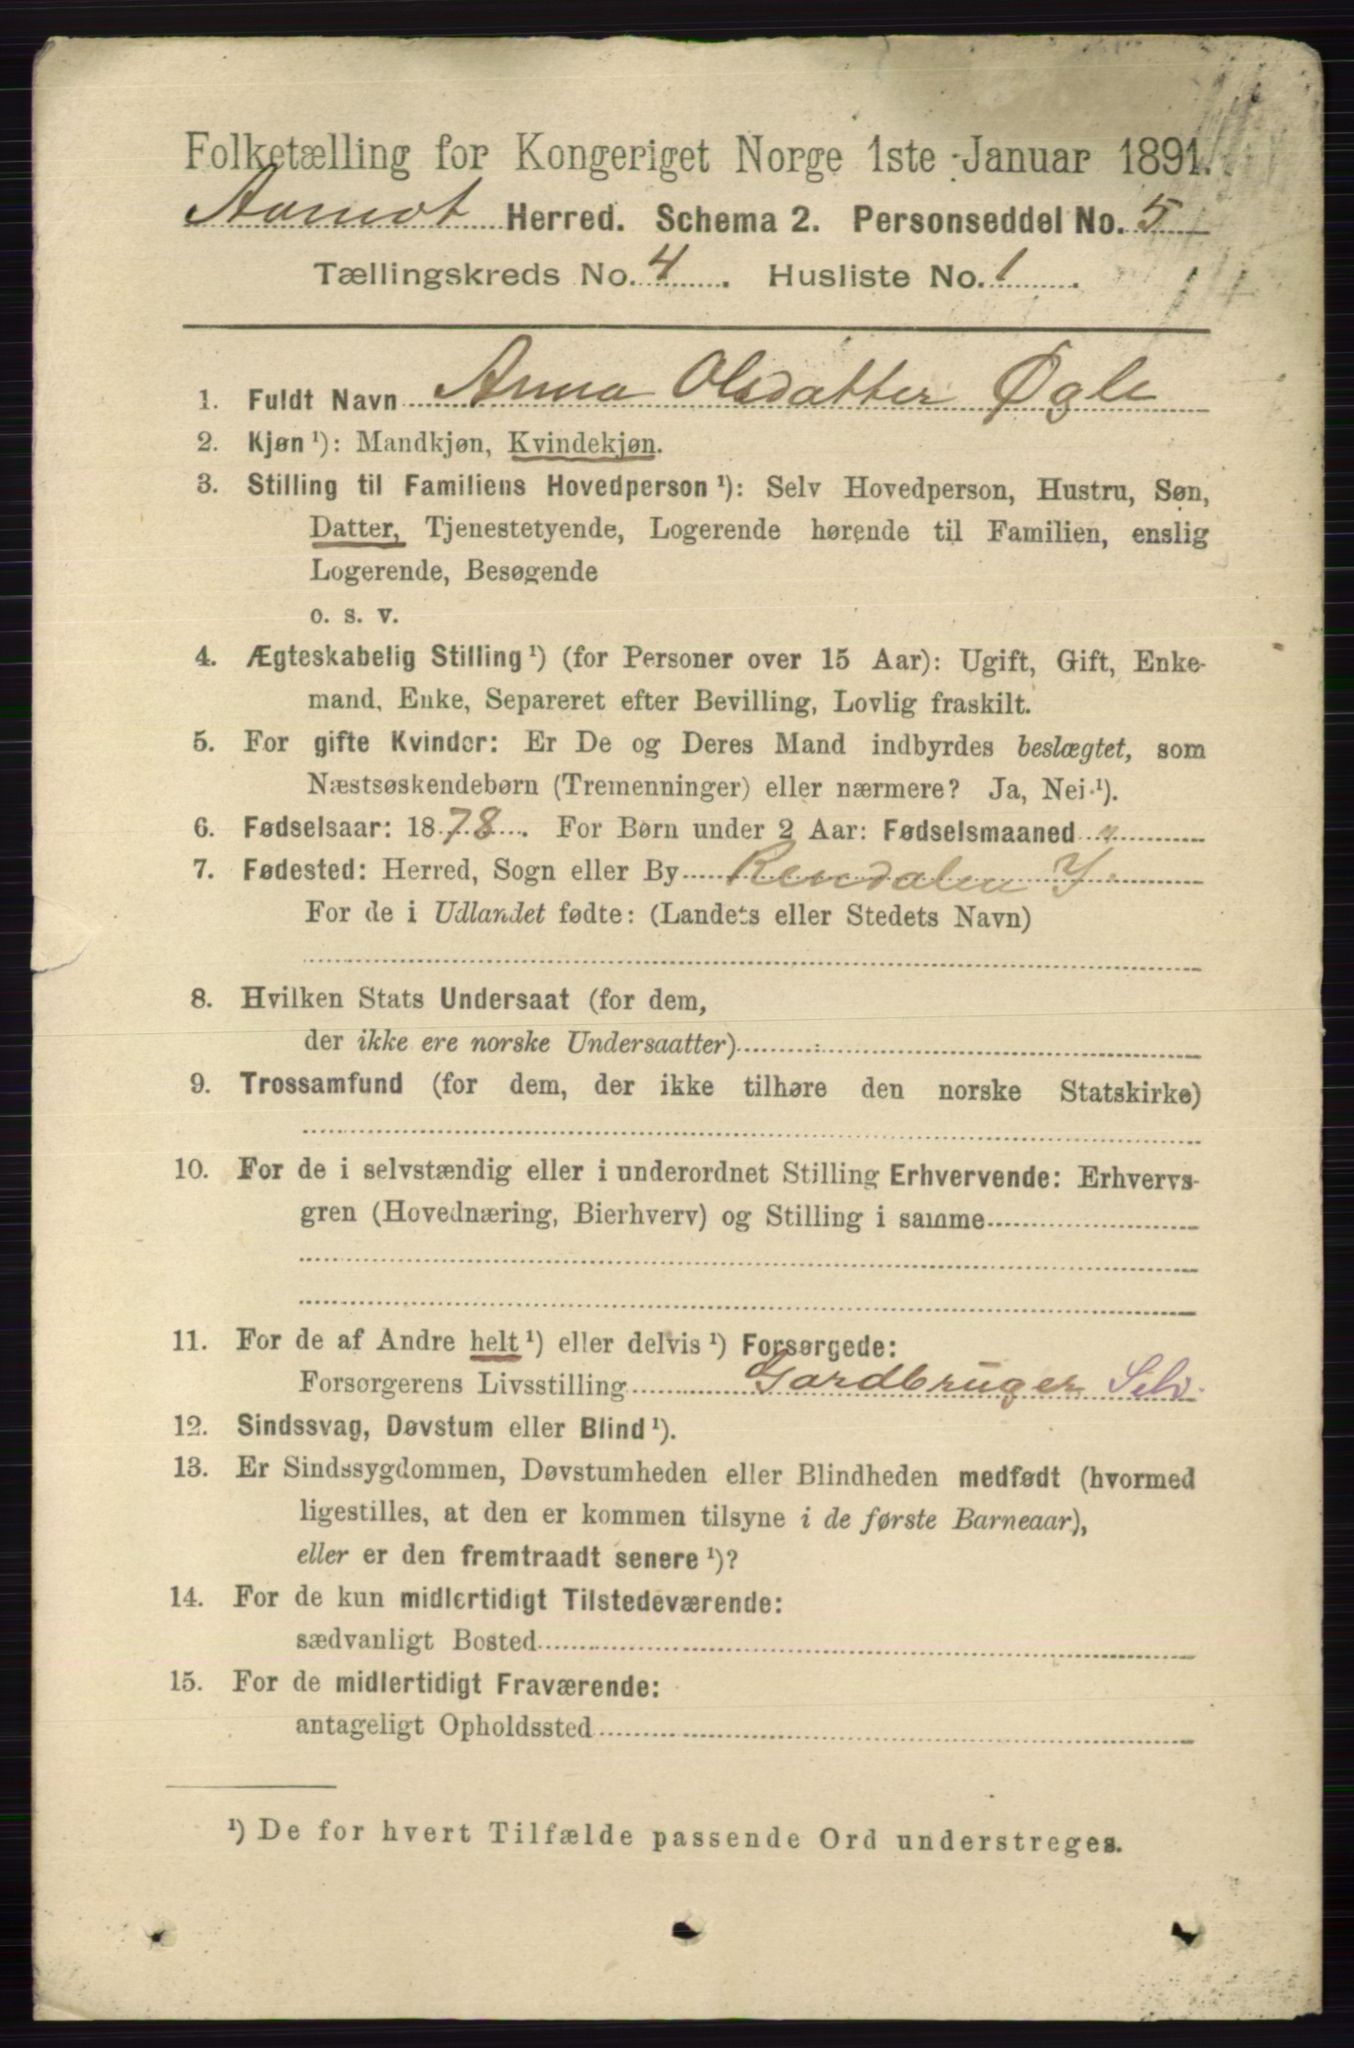 Folketælling for Kongeriget Norge 1ste Januar 1891.
Aamot Herred. Schema 2. Personseddel No. 5
Tællingskreds No. 4. Husliste No. 1.
1. Fuldt Navn Anna Olsdatter Øgle
2. Kjøn ¹): Mandkjøn, Kvindekjøn.
3. Stilling til Familiens Hovedperson ¹): Selv Hovedperson, Hustru, Søn,
Datter, Tjenestetyende, Logerende hørende til Familien, enslig
Logerende, Besøgende
o. s. v.
4. Ægteskabelig Stilling ¹) (for Personer over 15 Aar): Ugift, Gift, Enke-
mand, Enke, Separeret efter Bevilling, Lovlig fraskilt.
5. For gifte Kvinder: Er De og Deres Mand indbyrdes beslægtet, som
Næstsøskendebørn (Tremenninger) eller nærmere? Ja, Nei ¹).
6. Fødselsaar: 1878. For Børn under 2 Aar: Fødselsmaaned "
7. Fødested: Herred, Sogn eller By Rendalen Y.
For de i Udlandet fødte: (Landets eller Stedets Navn)
8. Hvilken Stats Undersaat (for dem,
der ikke ere norske Undersaatter)
9. Trossamfund (for dem, der ikke tilhøre den norske Statskirke)
10. For de i selvstændig eller i underordnet Stilling Erhvervende: Erhvervs-
gren (Hovednæring, Bierhverv) og Stilling i samme
11. For de af Andre helt ¹) eller delvis ¹) Forsørgede:
Forsørgerens Livsstilling Gardbruger Selv.
12. Sindssvag, Døvstum eller Blind ¹).
13. Er Sindssygdommen, Døvstumheden eller Blindheden medfødt (hvormed
ligestilles, at den er kommen tilsyne i de første Barneaar),
eller er den fremtraadt senere ¹)?
14. For de kun midlertidigt Tilstedeværende:
sædvanligt Bosted
15. For de midlertidigt Fraværende:
antageligt Opholdssted
¹) De for hvert Tilfælde passende Ord understreges.